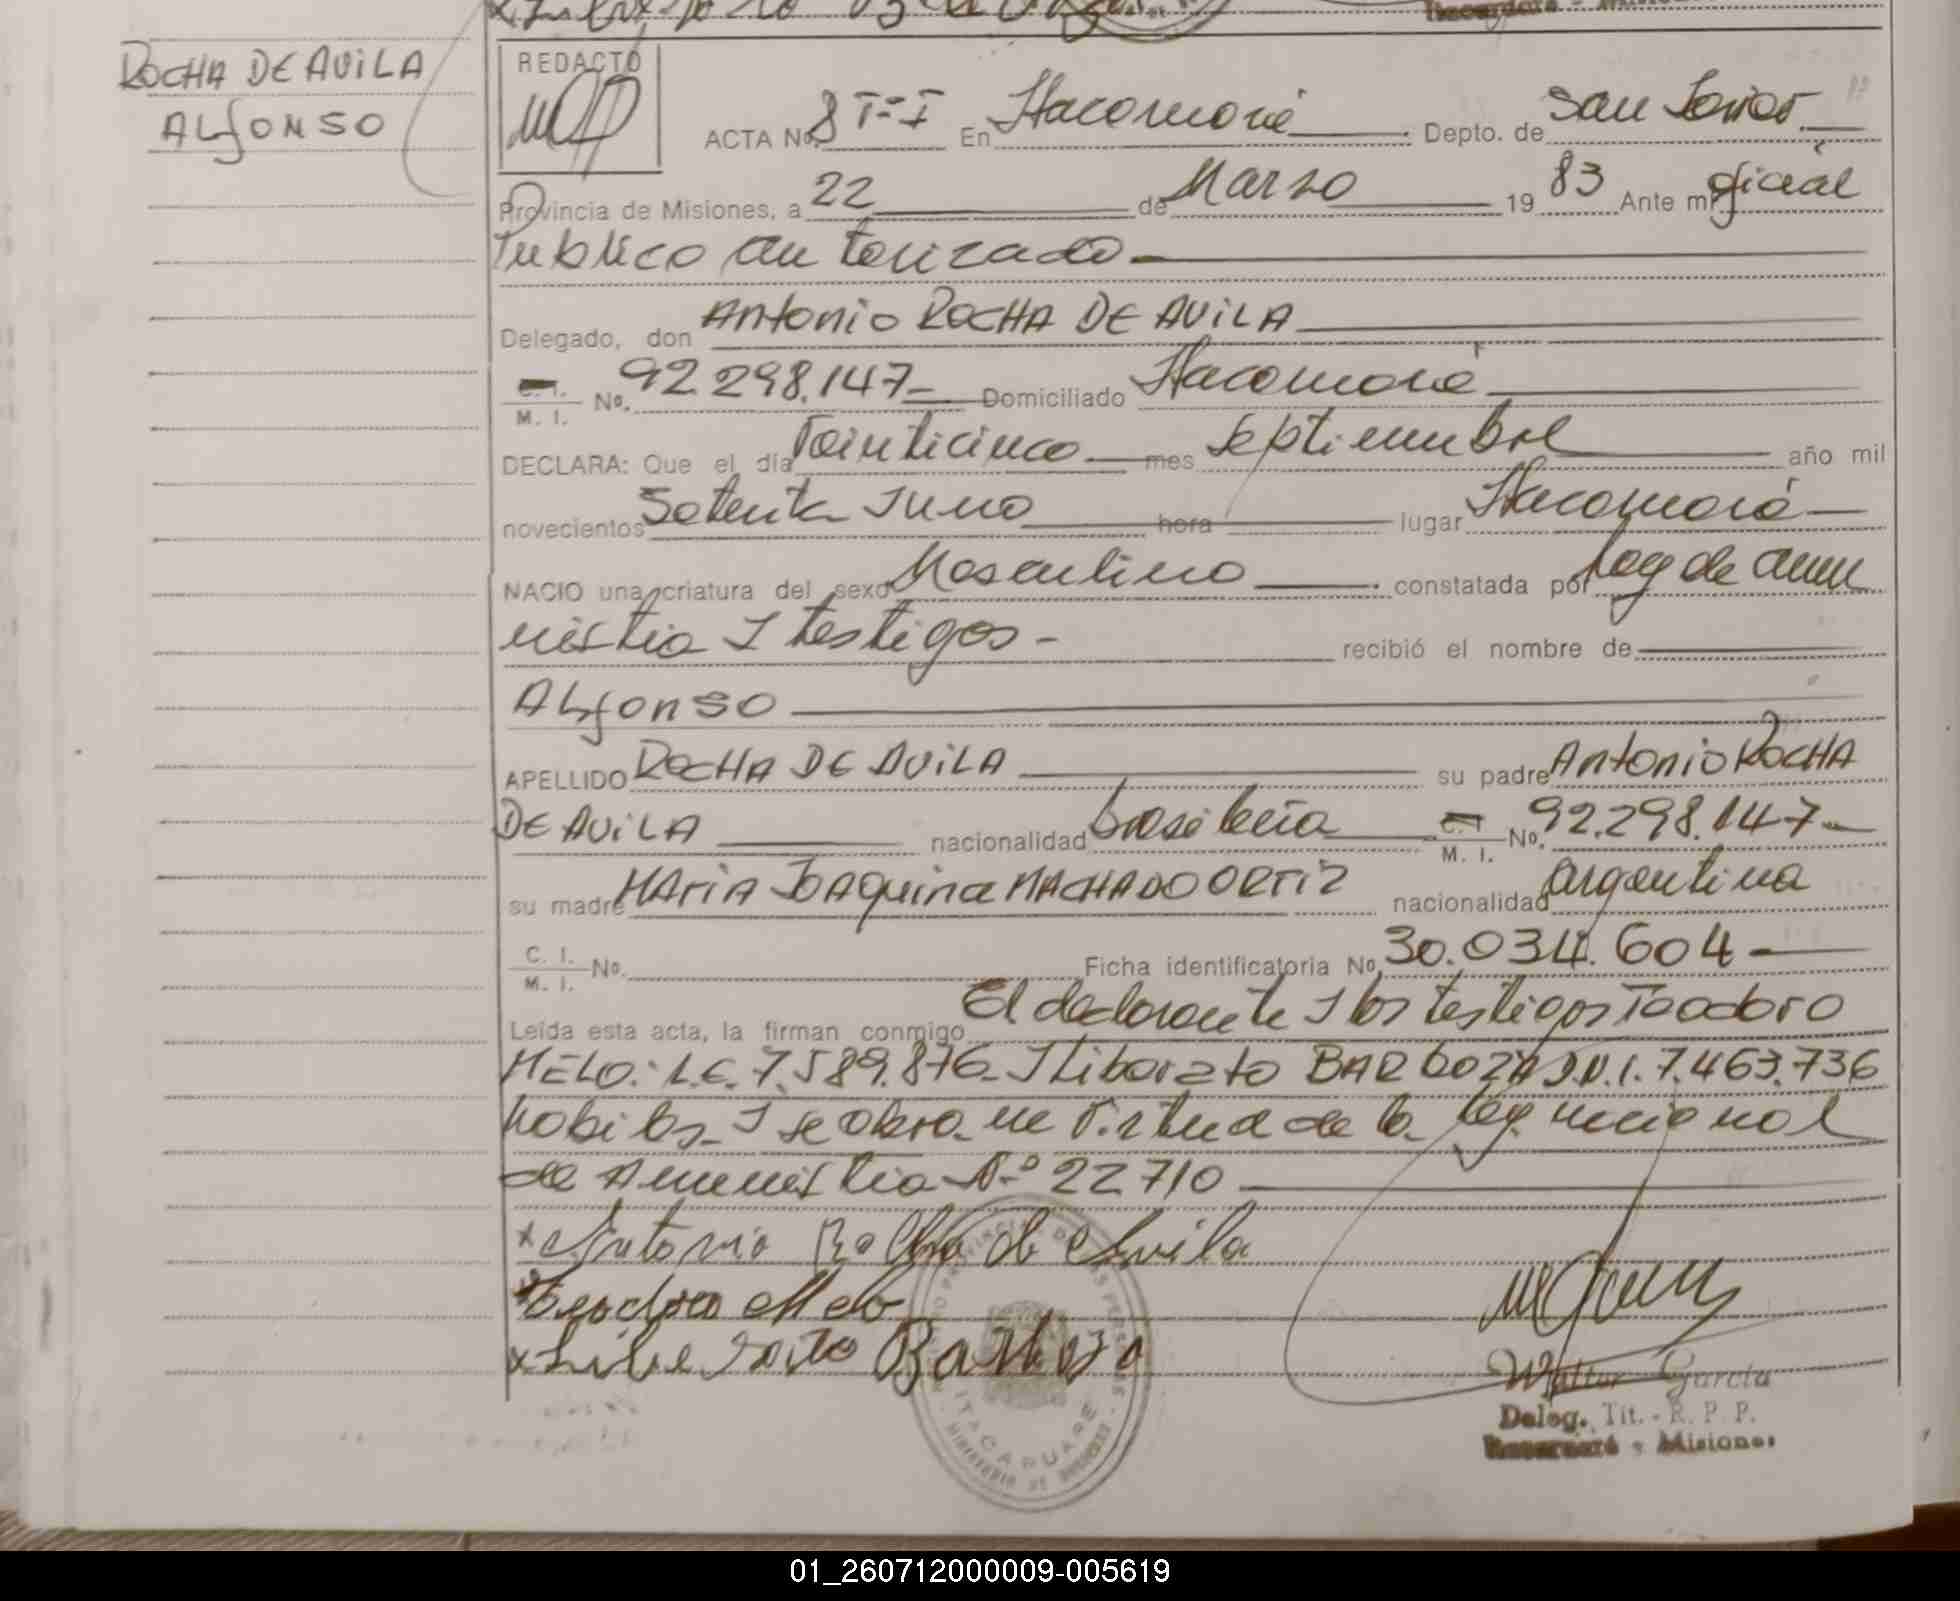 ROCHA DE AVILA
ALfONSO
REDACTO
ACTA No. 8 T-I En Itacaruaré Depto. de San Javier
Provincia de Misiones, a 22 de Marzo 19 83 Ante mi oficial
Publico autorizado
Delegado, don Antonio ROCHA DE AVILA
C. I. M. I. No. 92.298.147 Domiciliado Itacaruaré
DECLARA: Que el día Veinticinco mes Septiembre año mil
novecientos Setenta y uno hora lugar Itacaruaré
NACIO una criatura del sexo Masculino constatada por Ley de amn
nistia y testigos - recibió el nombre de
ALfonso
APELLIDO ROCHA DE AVILA su padre Antonio ROCHA
DE AVILA nacionalidad brasileña C. I. M. I. No. 92.298.147
su madre MAriA JOAquina MACHADO ORTIZ nacionalidad argentina
C. I. M. I. No. Ficha identificatoria No. 30.034.604
Leída esta acta, la firman conmigo El declarante y los testigos Teodoro
MELO: L.E. 7.589.876 y Liborato BARBOZA D.N.I. 7.463.736
habiles y se labra en virtud de la ley nacional
de Amnistia Nº 22710
x Antonio Rocha de Avila
x Teodoro Melo
x Barboza
ITACARUARE
Walter Garcia
Deleg. Tit. - R. P. P.
Itacaruaré - Misiones
01_260712000009-005619